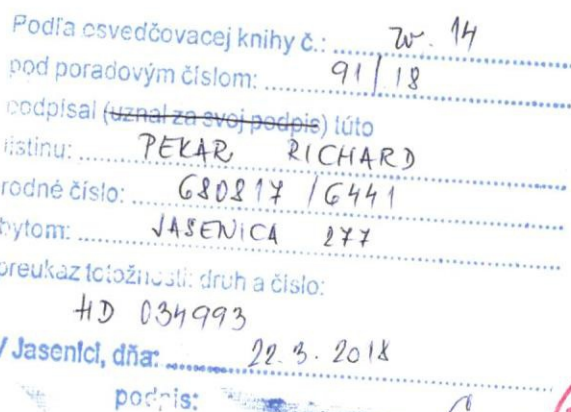 Podľa osvedčovacej knihy č.: zv. 14
pod poradovým číslom: 91/18
podpísal (uznal za svoj podpis) túto
listinu: PEKAR RICHARD
rodné číslo: 680817/6441
bytom: JASENICA 277
preukaz totožnosti: druh a číslo:
HD 034993
V Jasenici, dňa: 22.3.2018
podpis: